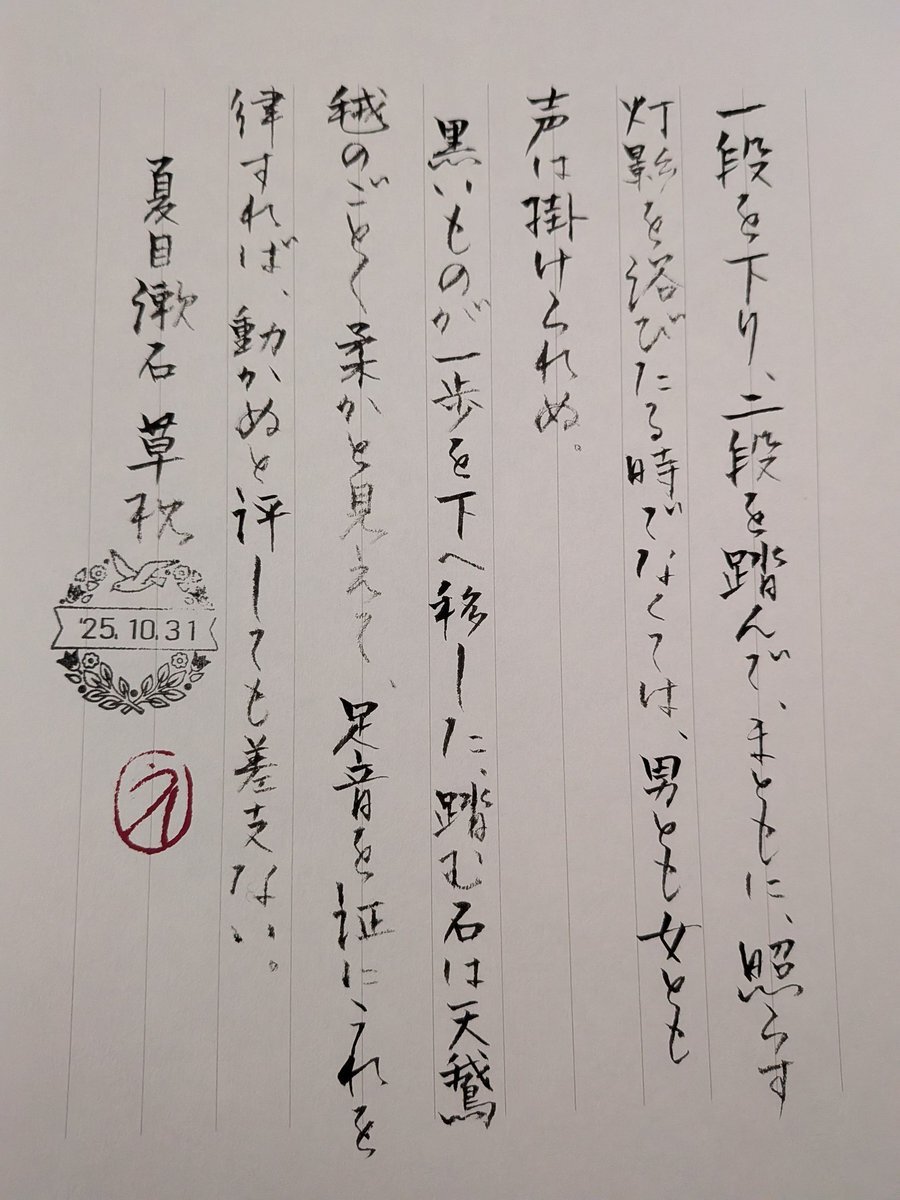 一段を下り、二段を踏んで、まともに、照らす
灯影を浴びたる時でなくては、男とも女とも
声は掛けられぬ。
黒いものが一歩を下へ移した、踏む石は天鵞
毧のごとく柔かと見えて、足音を証にこれを
律すれば、動かぬと評しても差支ない。
夏目漱石 草枕
'25.10.31